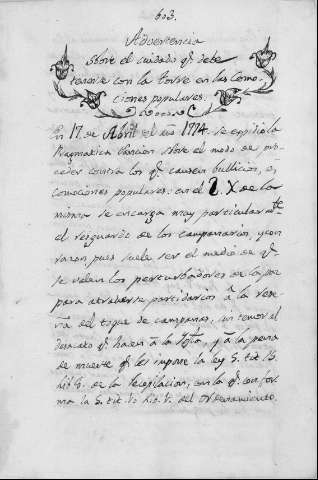 603.
Advertencia
sobre el cuidado q.e debe
tenerse con la Torre en las Como-
ciones populares.
En 17 de Abril del año 1774. se expidió la
Pragmatica Sancion sobre el modo de pro-
ceder contra los q.e causen bullicios, ó
comociones populares: en el § X de la
misma se encarga muy particularm.te
el resguardo de los campanarios, y con
razon pues suele ser el medio de q.e
se valen los perturbadores de la paz
para atraherse partidarios á la rese-
ña del toque de campanas, sin temor al
desacato q.e hacen á la Igl.a, y á la pena
de muerte q.e les impone la ley 5. tit.
lib. de la Recopilacion, con la q.e confor-
ma la 5. tit. lib. del Ordenamiento.